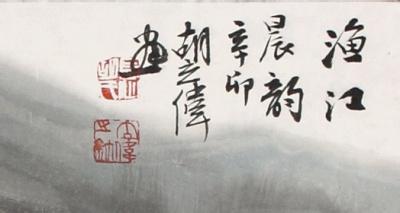 渔江
晨韵
辛卯
胡立伟
画